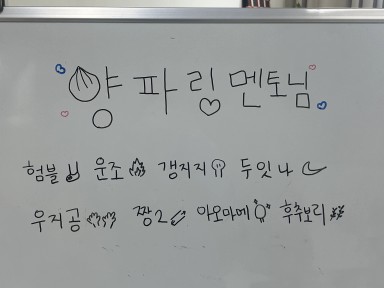 양파링멘토님
험블 운조 갱지지 두잇나
우지공 짱2 아오마메 후추보리